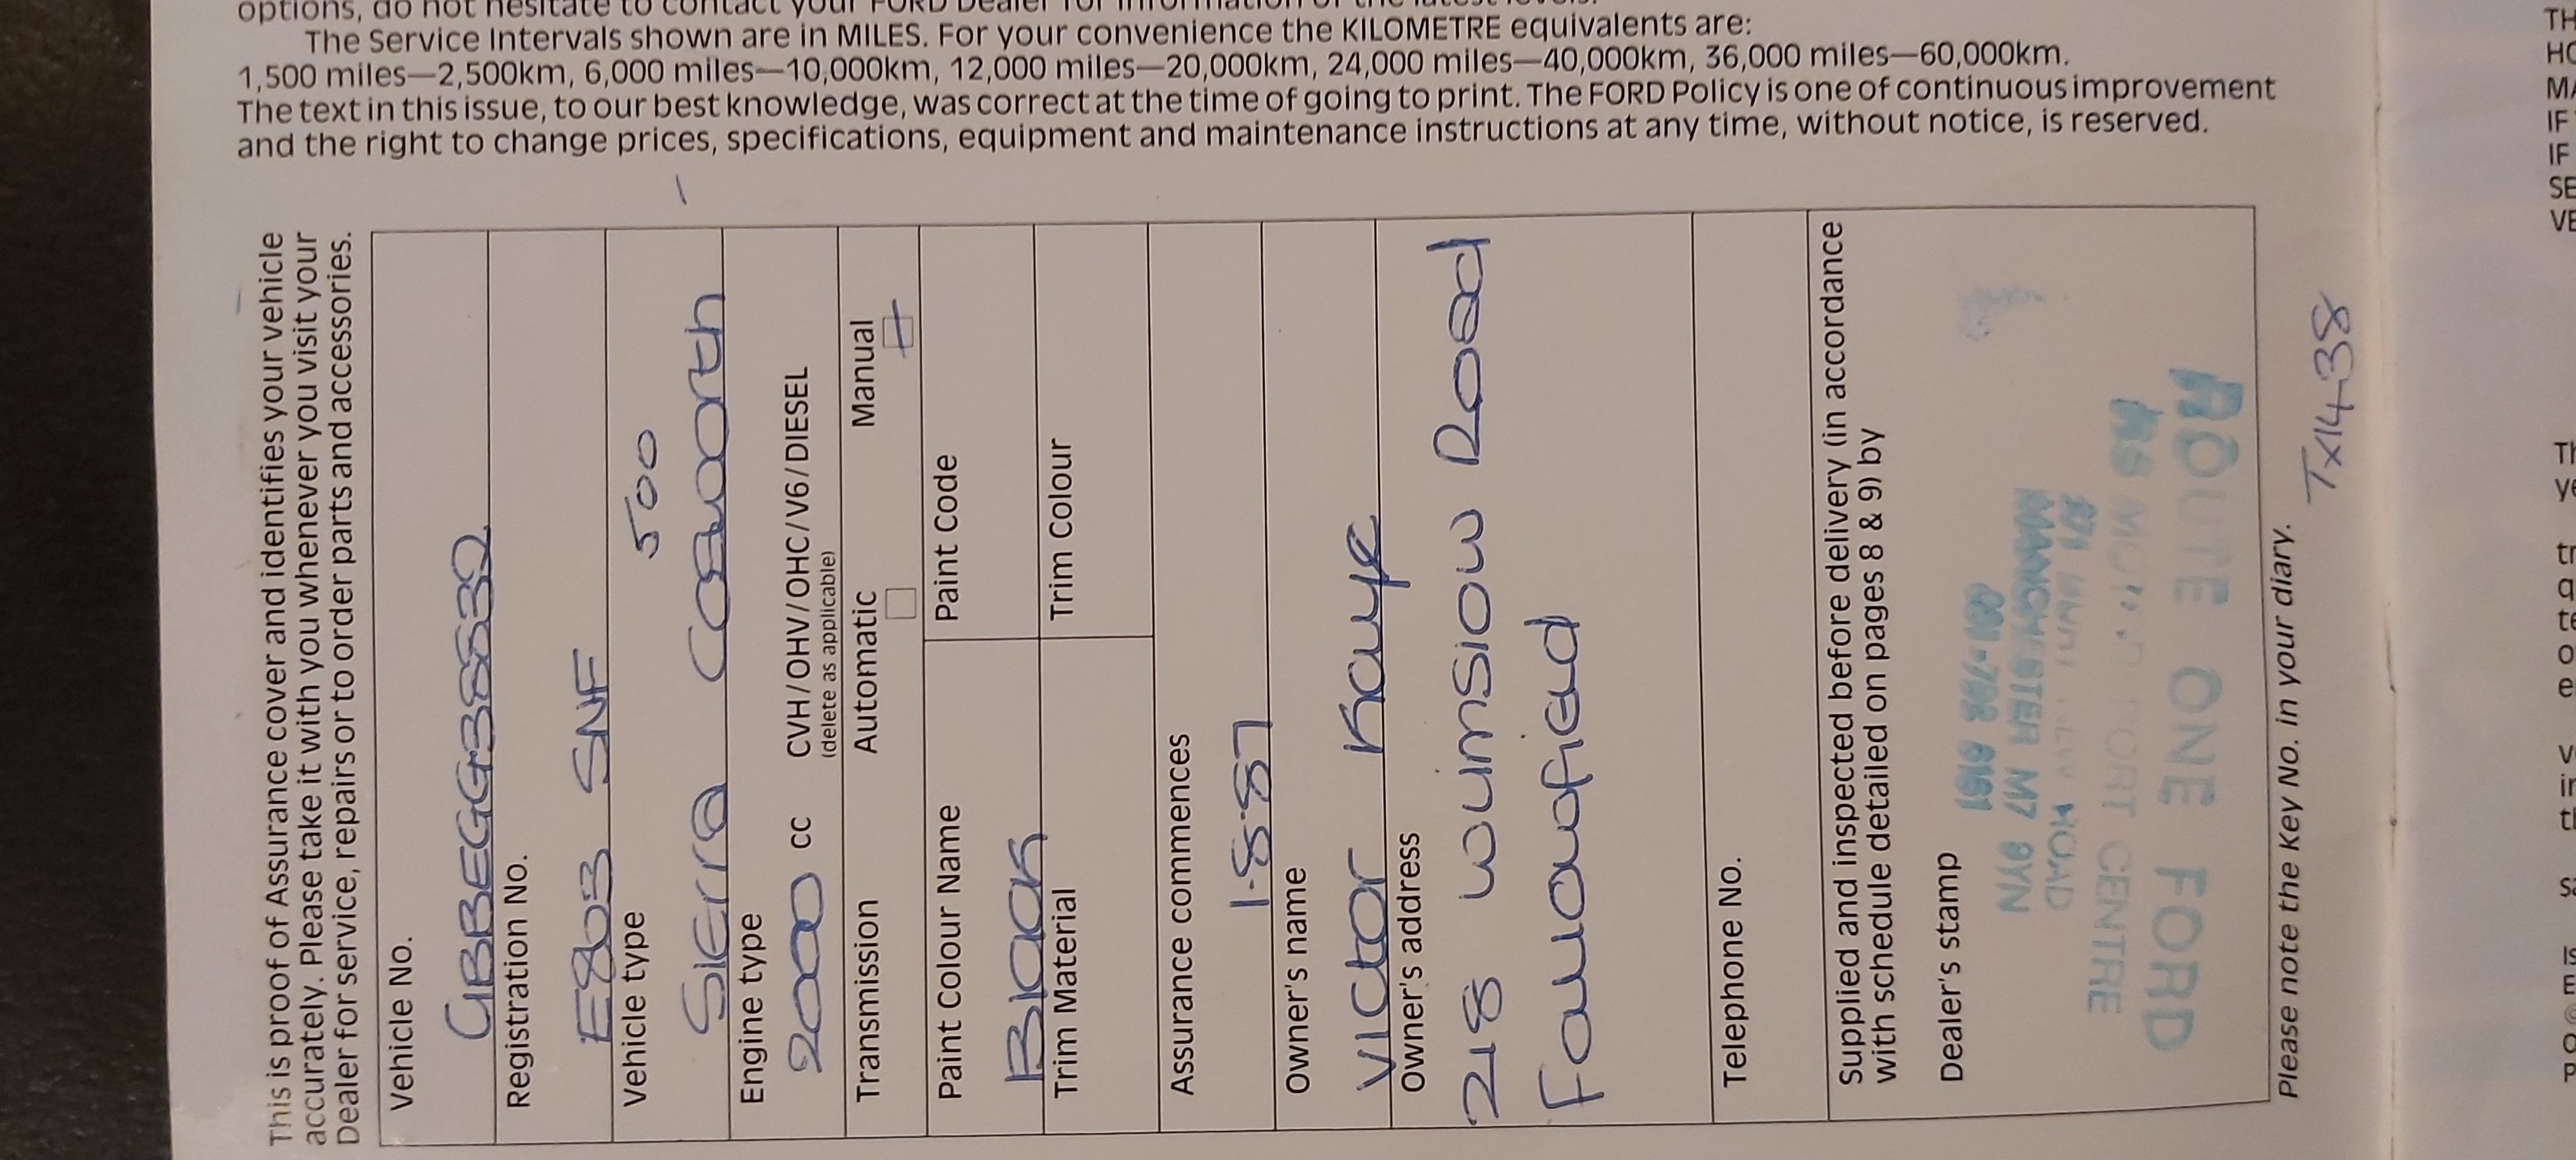 options, do not hesitate to contact your FORD Dealer for information of the latest levels.
The Service Intervals shown are in MILES. For your convenience the KILOMETRE equivalents are:
1,500 miles—2,500km, 6,000 miles—10,000km, 12,000 miles—20,000km, 24,000 miles—40,000km, 36,000 miles—60,000km.
The text in this issue, to our best knowledge, was correct at the time of going to print. The FORD Policy is one of continuous improvement
and the right to change prices, specifications, equipment and maintenance instructions at any time, without notice, is reserved.
This is proof of Assurance cover and identifies your vehicle
accurately. Please take it with you whenever you visit your
Dealer for service, repairs or to order parts and accessories.
Vehicle No.
GBBEGG38832
Registration No.
E803 SNF
Vehicle type
500
Sierra Cosworth
Engine type
2000 cc CVH/OHV/OHC/V6/DIESEL
(delete as applicable)
Transmission Automatic Manual
Paint Colour Name Paint Code
Black
Trim Material Trim Colour
Assurance commences
1.8.87
Owner's name
Victor Kaye
Owner's address
218 Road
Telephone No.
Supplied and inspected before delivery (in accordance
with schedule detailed on pages 8 & 9) by
Dealer's stamp
061-792 6161
MANCHESTER M7 9YN
ROAD
RS CENTRE
ROUTE ONE FORD
Please note the Key No. in your diary.
TX1438
TH
HO
MA
IF
IF
SE
VE